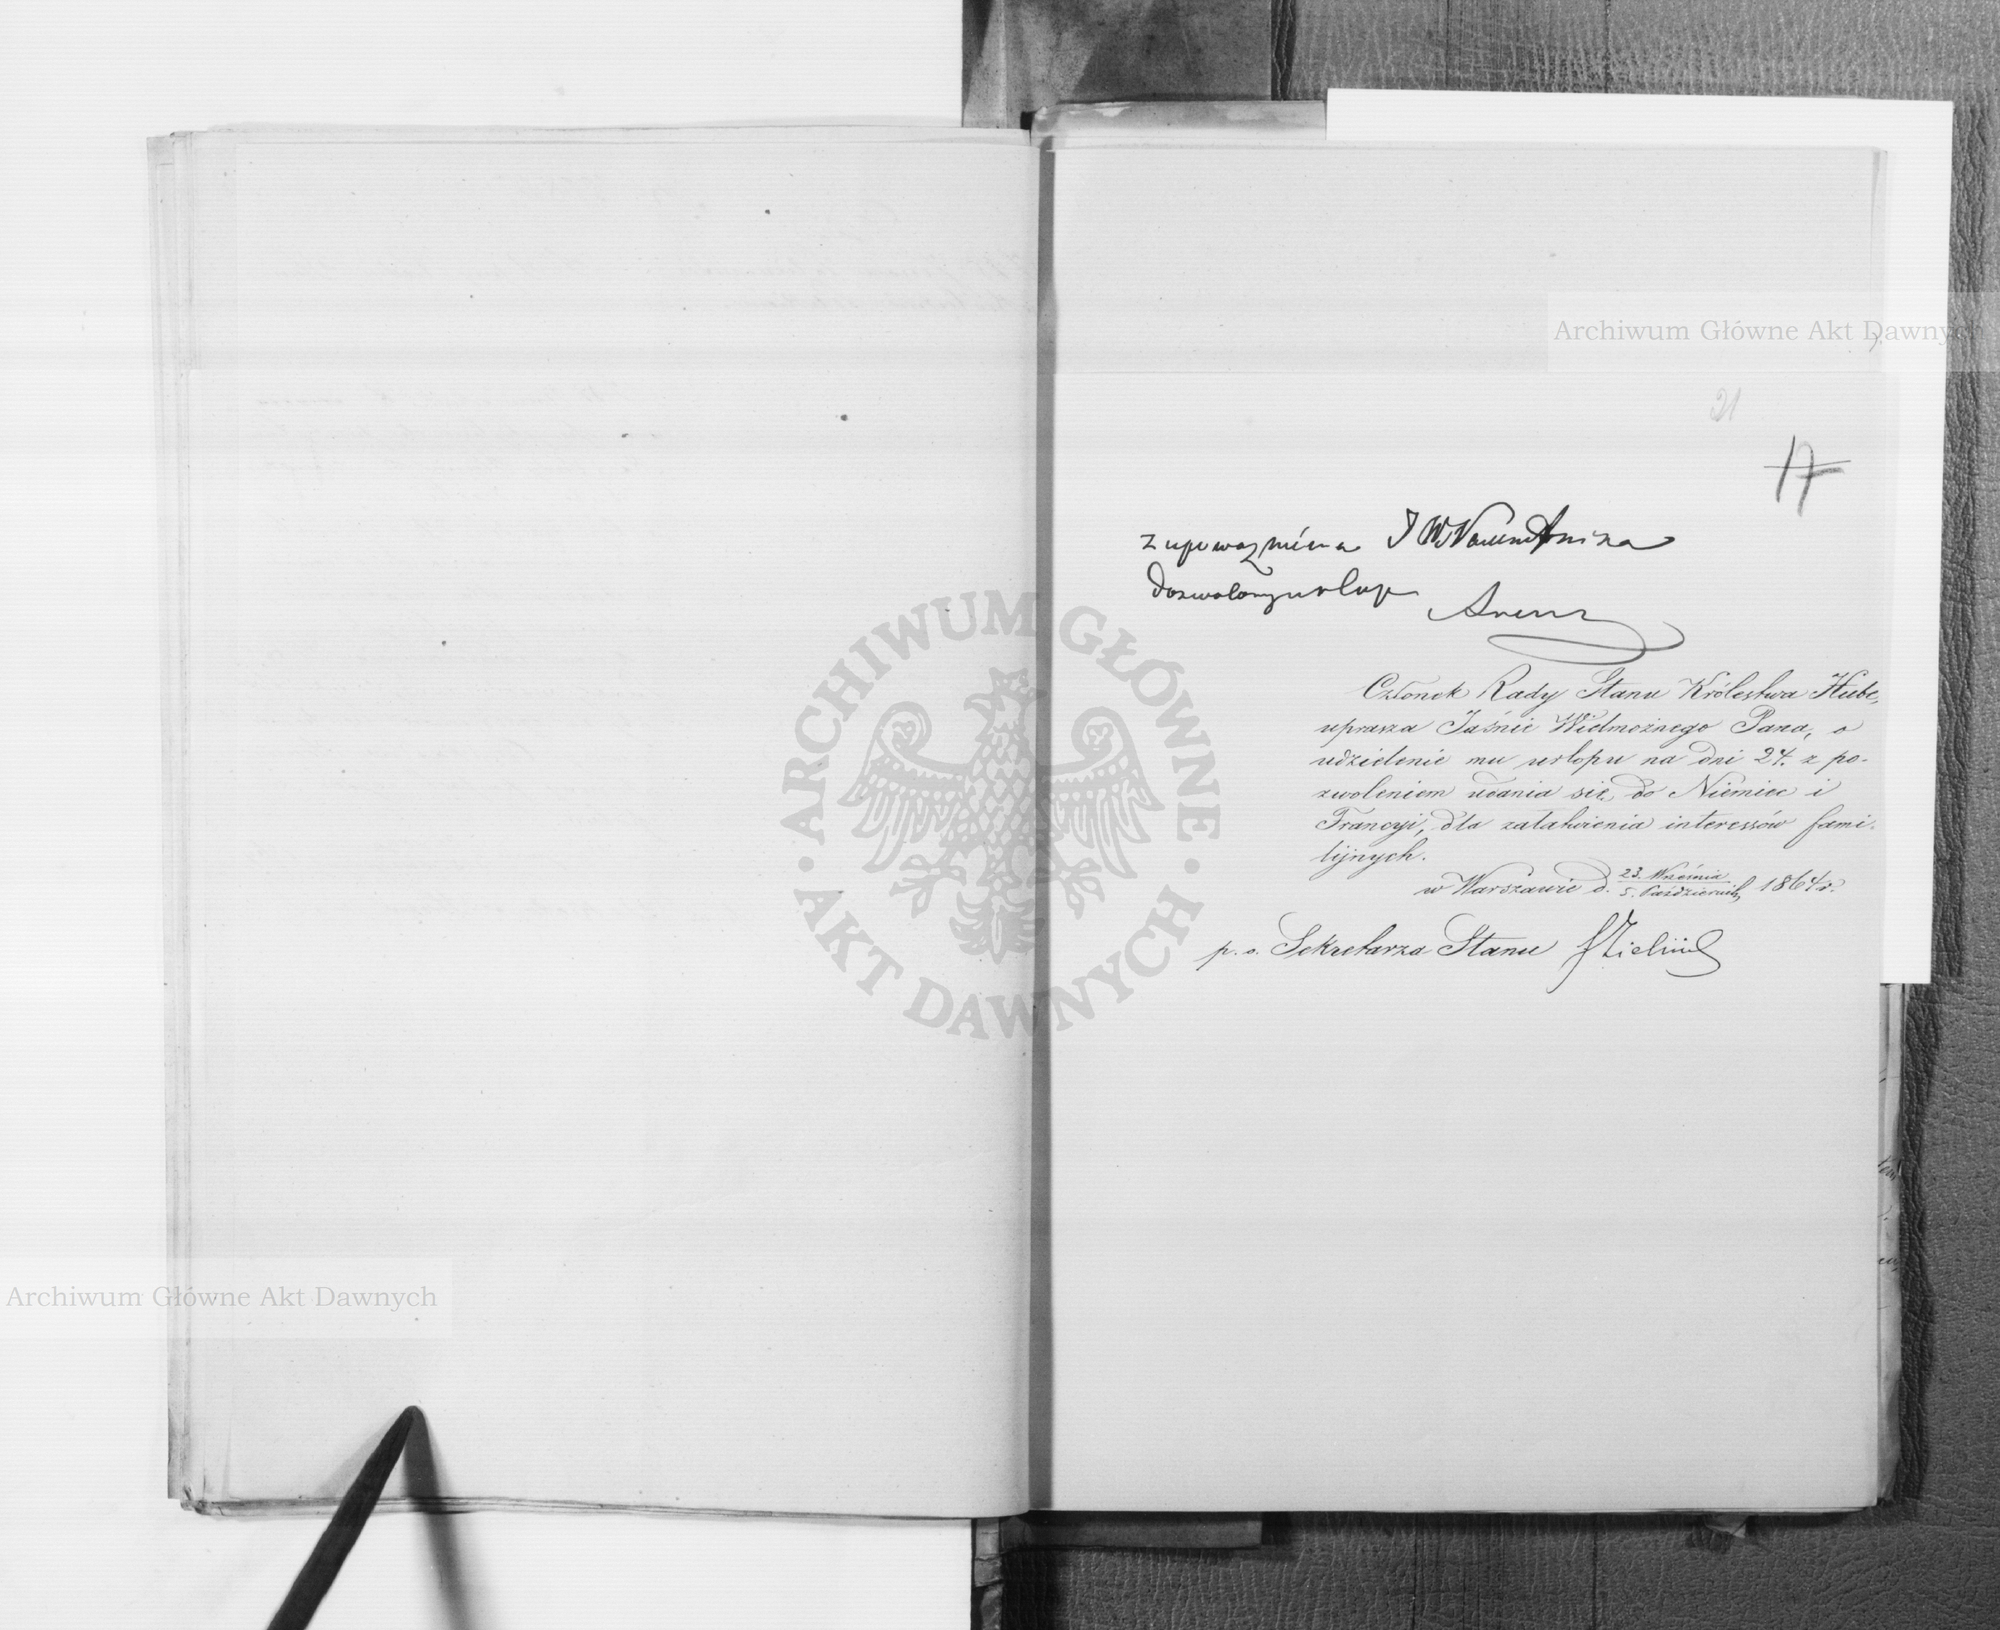 Archiwum Główne Akt Dawnych
21
17
z upoważnienia JW Namiestnika
dozwolony urlop
Członek Rady Stanu Królestwa Hube,
uprasza Jaśnie Wielmożnego Pana, o
udzielenie mu urlopu na dni 24. z po-
zwoleniem udania się do Niemiec i
Francyi, dla załatwienia interessów fami-
lijnych.
w Warszawie d. 23. Września / 5. Październik 1864 r.
p. o. Sekretarza Stanu
ARCHIWUM GŁÓWNE
AKT DAWNYCH
Archiwum Główne Akt Dawnych